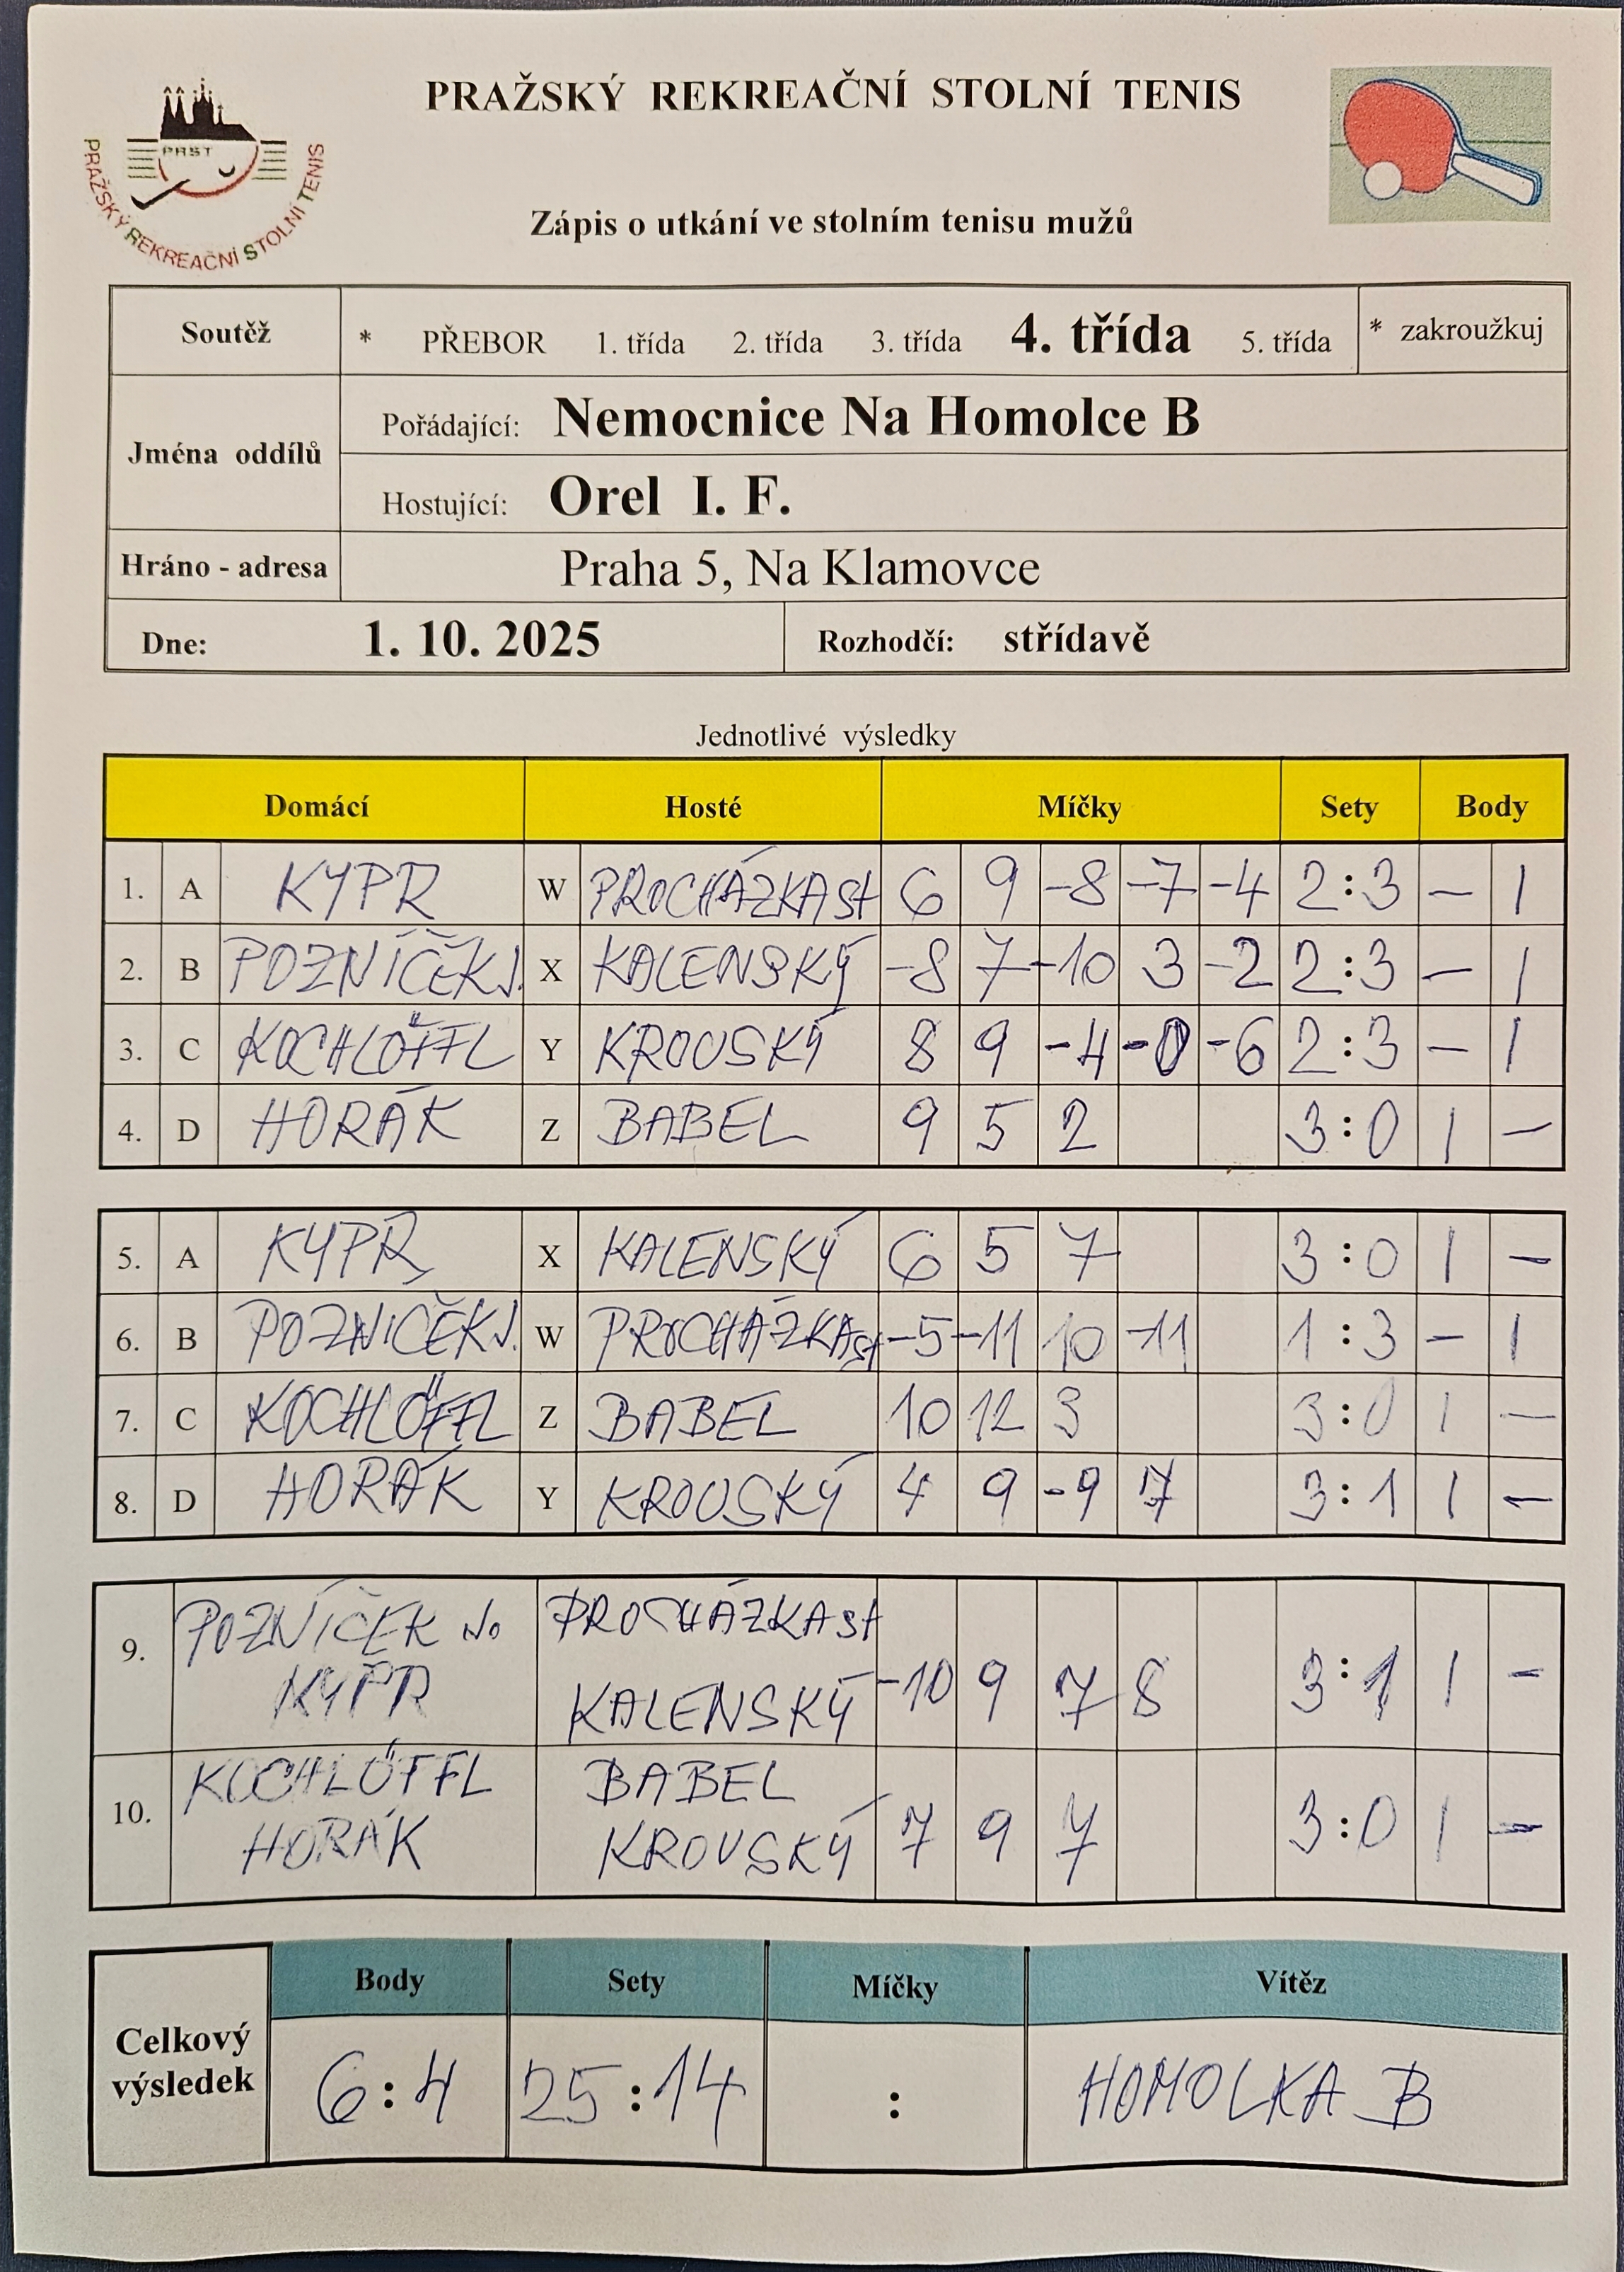 PRAŽSKÝ REKREAČNÍ STOLNÍ TENIS
PRST
PRAŽSKÝ REKREAČNÍ STOLNÍ TENIS
Zápis o utkání ve stolním tenisu mužů
Soutěž * PŘEBOR 1. třída 2. třída 3. třída 4. třída 5. třída * zakroužkuj
Jména oddílů
Pořádající: Nemocnice Na Homolce B
Hostující: Orel I. F.
Hráno - adresa Praha 5, Na Klamovce
Dne: 1. 10. 2025 Rozhodčí: střídavě
Jednotlivé výsledky
Domácí Hosté Míčky Sety Body
1. A KYPR W PROCHÁZKA St 6 9 -8 -7 -4 2:3 - 1
2. B POZNÍČEK J. X KALENSKÝ -8 7 -10 3 -2 2:3 - 1
3. C KOCHLÖFFL Y KROUSKÝ 8 9 -4 -0 -6 2:3 - 1
4. D HORÁK Z BABEL 9 5 2 3:0 1 -
5. A KYPR X KALENSKÝ 6 5 7 3:0 1 -
6. B POZNIČEK J. W PROCHÁZKA St -5 -11 10 -11 1:3 - 1
7. C KOCHLÖFFL Z BABEL 10 12 3 3:0 1 -
8. D HORÁK Y KROUSKÝ 4 9 -9 7 3:1 1 -
9. POZNÍČEK J. PROCHÁZKA St
KYPR KALENSKÝ -10 9 7 8 3:1 1 -
10. KOCHLÖFFL BABEL
HORÁK KROUSKÝ 7 9 7 3:0 1 -
Body Sety Míčky Vítěz
Celkový výsledek 6:4 25:14 : HOMOLKA B